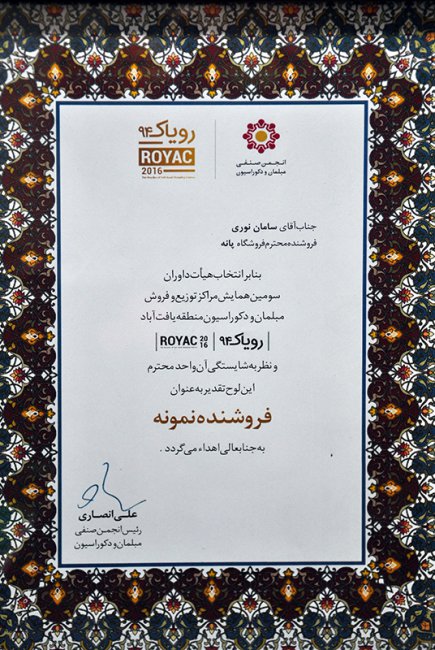 رویاک ۹۴
ROYAC
2016
انجمن صنفی
مبلمان و دکوراسیون
جناب آقای سامان نوری
فروشنده محترم فروشگاه پانه
بنا بر انتخاب هیأت داوران
سومین همایش مراکز توزیع و فروش
مبلمان و دکوراسیون منطقه یافت آباد
| رویاک ۹۴ | ROYAC 20 16 |
و نظر به شایستگی آن واحد محترم
این لوح تقدیر به عنوان
فروشنده نمونه
به جنابعالی اهداء می گردد .
علی انصاری
رئیس انجمن صنفی
مبلمان و دکوراسیون